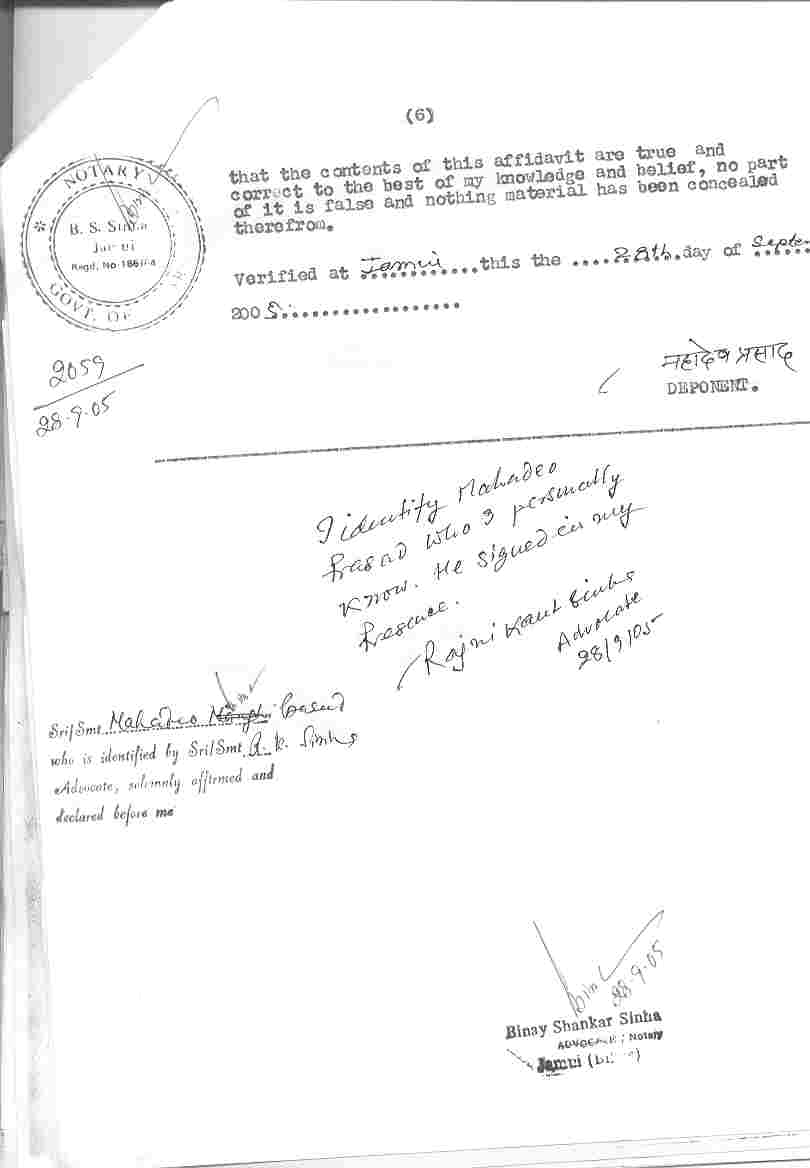 (6)
that the contents of this affidavit are true and
correct to the best of my knowledge and belief, no part
of it is false and nothing material has been concealed
therefrom.
NOTARY
B. S. Sinha
Jamui
Regd. No.
GOVT. OF
Verified at Jamui this the 28th day of Septe
2005
2059
28.9.05
महादेव प्रसाद
DEPONENT.
I identify Mahadeo
Prasad who I personally
know. He signed in my
Presence.
Rajni Kant Sinha
Advocate
28/9/05
Sri/Smt Mahadeo Prasad
who is identified by Sri/Smt R. K. Sinha
Advocate, solemnly affirmed and
declared before me
28.9.05
Binay Shankar Sinha
ADVOCATE; Notary
Jamui